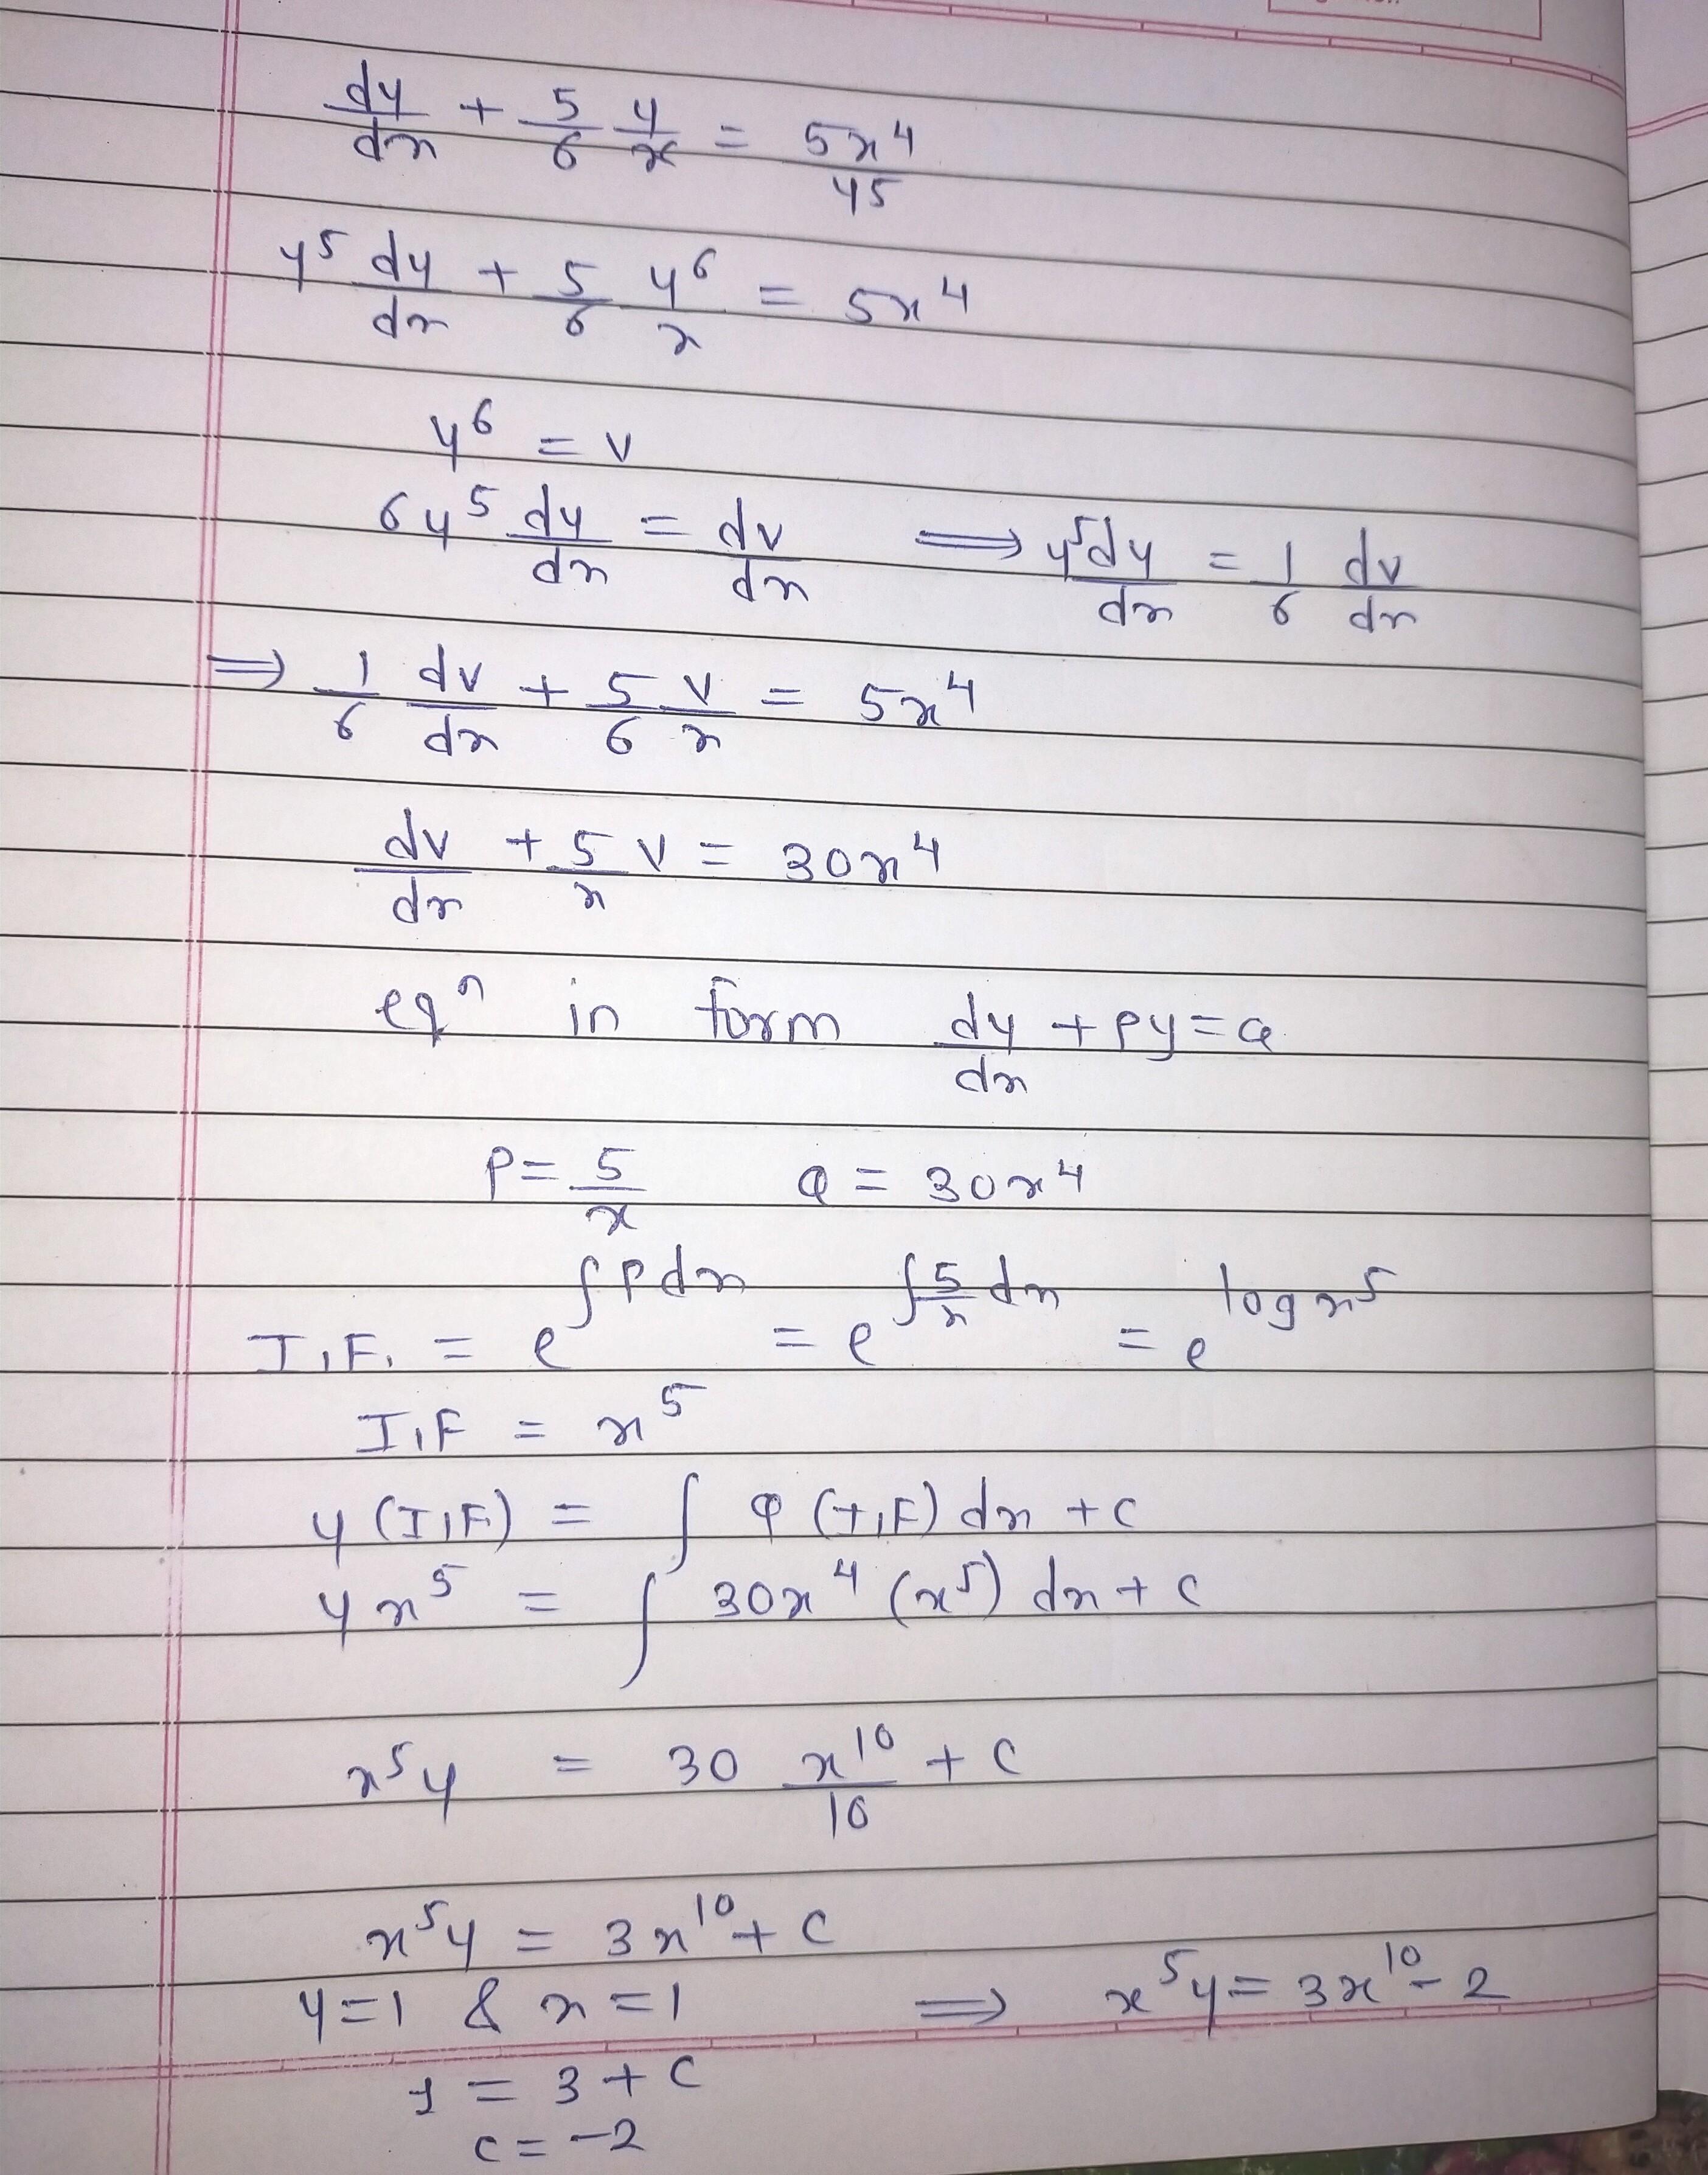 dy/dx + 5/6 y/x = 5x^4/y^5
y^5 dy/dx + 5/6 y^6/x = 5x^4
y^6 = v
6y^5 dy/dx = dv/dx ⟹ y^5 dy/dx = 1/6 dv/dx
⟹ 1/6 dv/dx + 5/6 v/x = 5x^4
dv/dx + 5/x v = 30x^4
eq^n in form dy/dx + Py = Q
P = 5/x Q = 30x^4
I.F. = e^{∫P dx} = e^{∫5/x dx} = e^{log x^5}
I.F = x^5
y (I.F.) = ∫ Q (I.F) dx + C
y x^5 = ∫ 30x^4 (x^5) dx + C
x^5 y = 30 x^10/10 + C
x^5 y = 3x^10 + C
y = 1 & x = 1 ⟹ x^5 y = 3x^10 - 2
1 = 3 + C
C = -2